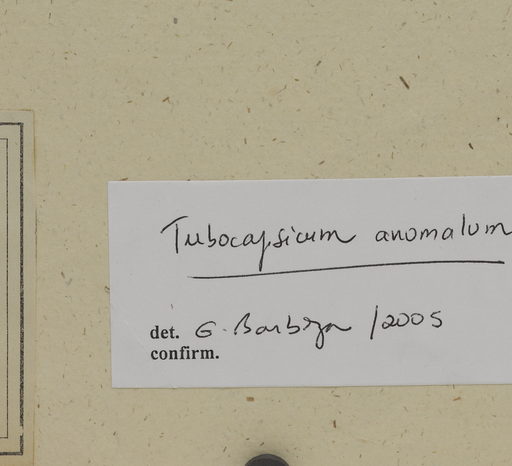 Tubocapsicum anomalum
det. G. Barboza /2005
confirm.